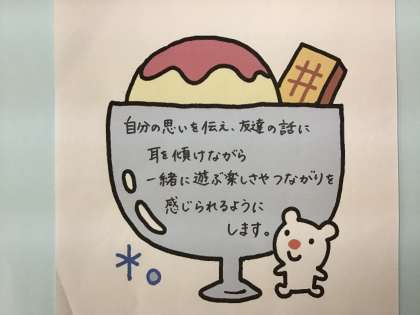 自分の思いを伝え、友達の話に
耳を傾けながら
一緒に遊ぶ楽しさやつながりを
感じられるように
します。